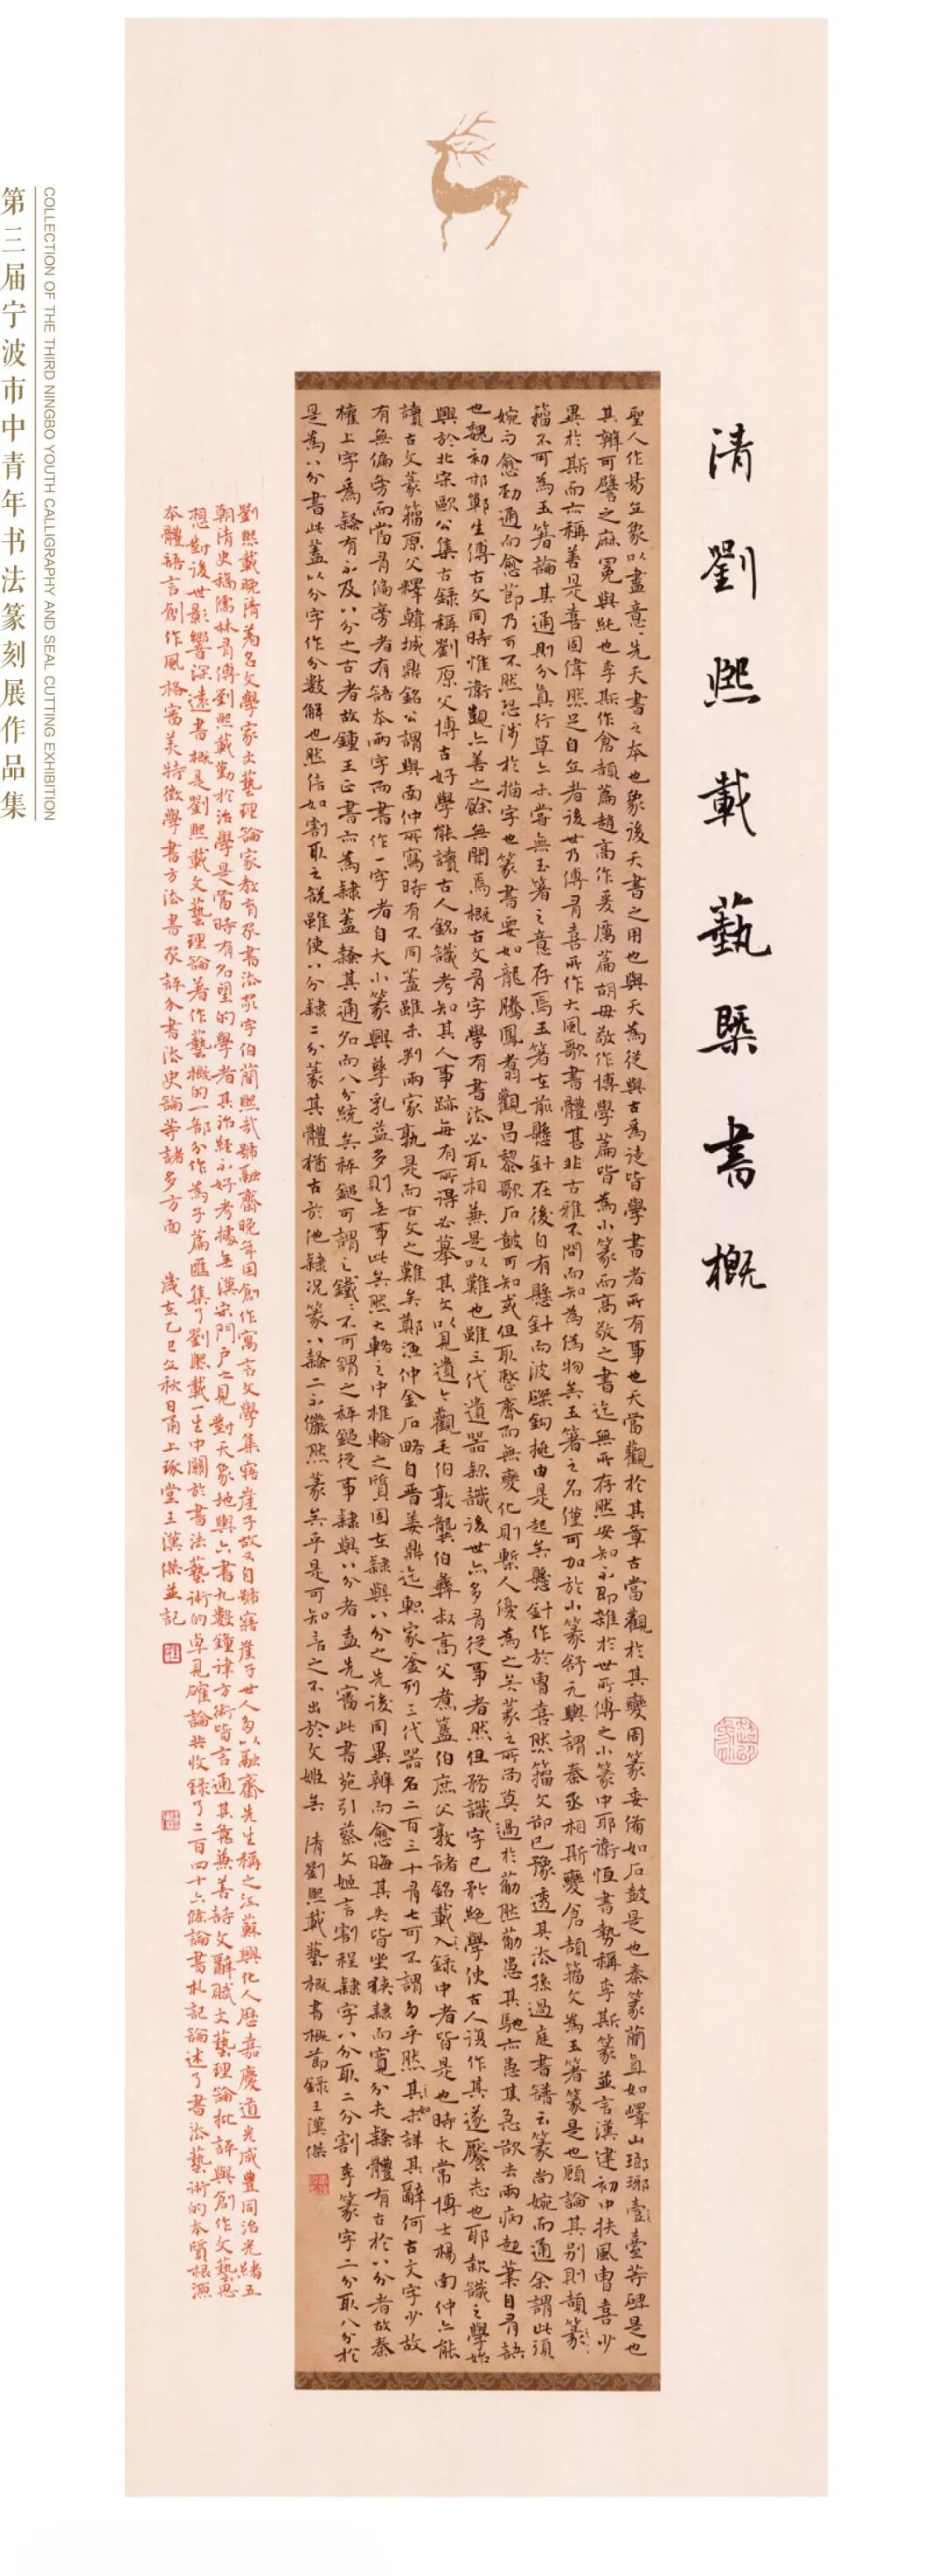 第三届宁波市中青年书法篆刻展作品集
COLLECTION OF THE THIRD NINGBO YOUTH CALLIGRAPHY AND SEAL CUTTING EXHIBITION
清劉熙載藝槩書概
聖人作易立象以盡意先天書之本也象後天書之用也與天為徒與古為徒皆學書者所有事也天當觀於其章古當觀於其變周篆委備如石鼓是也秦篆簡直如嶧山瑯琊臺臺等碑是也
其辨可譬之麻冕與純也李斯作倉頡篇趙高作爰歷篇胡毋敬作博學篇皆為小篆而高敬之書迄無所存然安知不即雜於世所傳之小篆中耶衛恒書勢稱李斯篆並言漢建初中扶風曹喜少
異於斯而亦稱善是喜固偉然足自立者後世乃傳有喜所作大風歌書體甚非古雅不問而知為偽物矣玉箸之名僅可加於小篆舒元輿謂秦丞相斯變倉頡籀文為玉箸篆是也顧論其別則頡篆
籀不可為玉箸論其通則分真行草亦未嘗無玉箸之意存焉玉箸在前懸針在後自有懸針而波磔鉤挑由是起矣懸針作於曹喜然籀文卻已豫透其法孫過庭書譜云篆尚婉而通余謂此須
婉而愈勁通而愈節乃可不然恐涉於描字也篆書要如龍騰鳳翥觀昌黎歌石鼓可知或但取整齊而無變化則槧人優為之矣篆之所尚莫過於筋然筋患其馳亦患其急欲去兩病趄筆自有訣
也魏初邯鄲生傳古文同時惟衛覬亦善之餘無聞焉概古文有字學有書法必取相兼是以難也雖三代遺器款識後世亦多有從事者然但務識字已矜絕學使古人復作其遂饜志也耶款識之學始
興於北宋歐公集古錄稱劉原父博古好學能讀古人銘識考知其人事跡每有所得必摹其文以見遺今觀毛伯敦龔伯彝叔高父煮簋伯庶父敦諸銘載入錄中者皆是也時太常博士楊南仲亦能
讀古文篆籀原父釋韓城鼎銘公謂與南仲所寫時有不同蓋雖未判兩家孰是而古文之難矣鄭漁仲金石略自晉姜鼎迄軹家釜列三代器名二百三十有七可不謂多乎然其未詳其辭何古文字少故
有無偏旁而當有偏旁者有語本兩字而書作一字者自大小篆興孳乳益多則無事此矣然大輅之中椎輪之質固在隸與八分之先後同異辨而愈晦其失皆坐狹隸而寬分夫隸體有古於八分者故秦
權上字為隸有不及八分之古者故鍾王正書亦為隸蓋隸其通名而八分統矣秤鎚可謂之鐵鐵不可謂之秤鎚從事隸與八分者盍先審此書苑引蔡文姬言割程隸字八分取二分割李篆字二分取八分於
是為八分書此蓋以分字作分數解也然信如割取之說雖使八分隸二分篆其體猶古於他隸況篆八隸二不儼然篆矣乎是可知言之不出於文姬矣 清劉熙載藝概書概節錄王漢傑
劉熙載晚清著名文學家文藝理論家教育家書法家字伯簡熙哉號融齋晚年因創作寓言文學集寤崖子故又自號寤崖子世人多以融齋先生稱之江蘇興化人歷嘉慶道光咸豐同治光緒五
朝清史稿儒林有傳劉熙載勤於治學是當時有名望的學者其治經不好考據無漢宋門戶之見對天象地輿六書九數鐘律方術皆言通其意兼善詩文辭賦文藝理論批評與創作文藝思
想對後世影響深遠書概是劉熙載文藝理論著作藝概的一部分作為子篇匯集了劉熙載一生中關於書法藝術的卓見確論共收錄了二百四十六條論書札記論述了書法藝術的本質根源
本體語言創作風格審美特徵學書方法書家評介書法史論等諸多方面 歲在乙巳立秋日甬上琢堂王漢傑並記